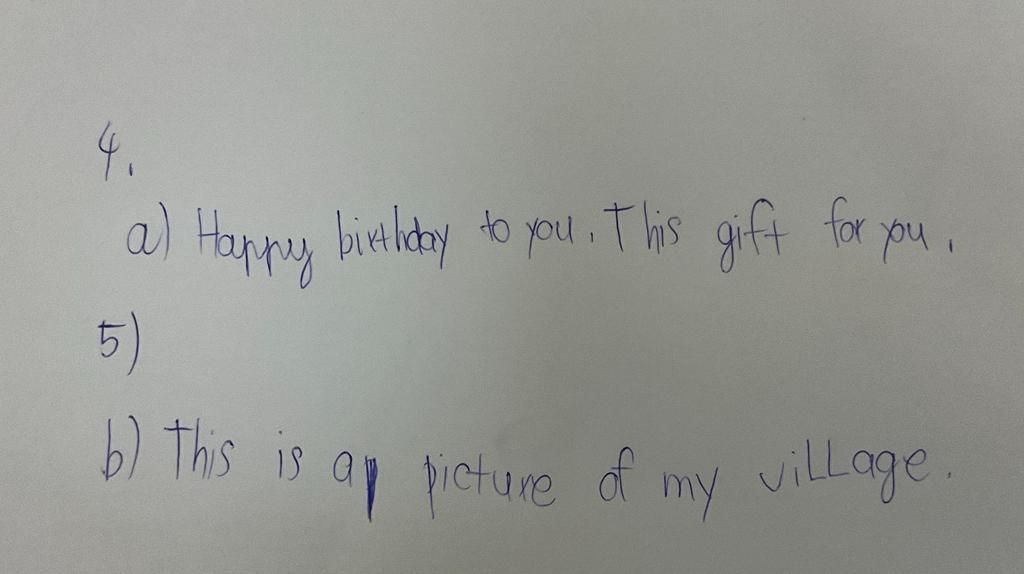 4.
a) Happy birthday to you. This gift for you.
5)
b) This is a picture of my village.